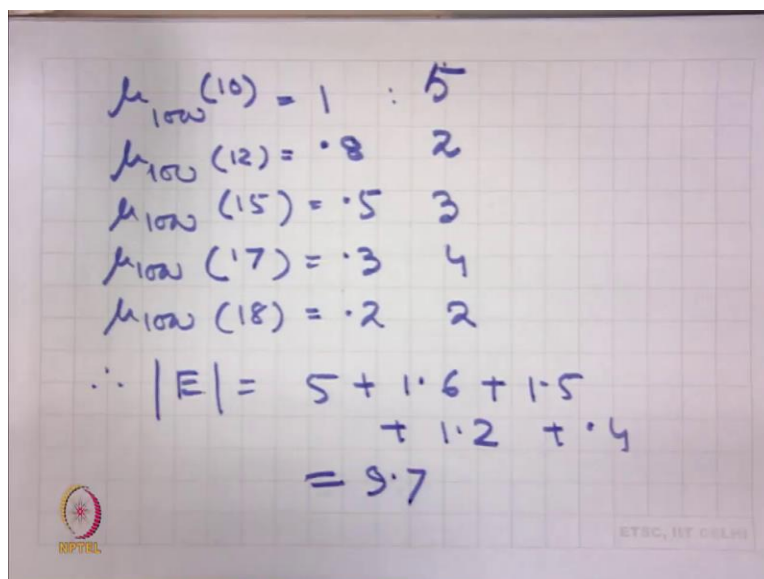 μ low (10) = 1 : 5
μ low (12) = .8 2
μ low (15) = .5 3
μ low (17) = .3 4
μ low (18) = .2 2
∴ |E| = 5 + 1.6 + 1.5
+ 1.2 + .4
= 9.7
NPTEL
ETSC, IIT DELHI